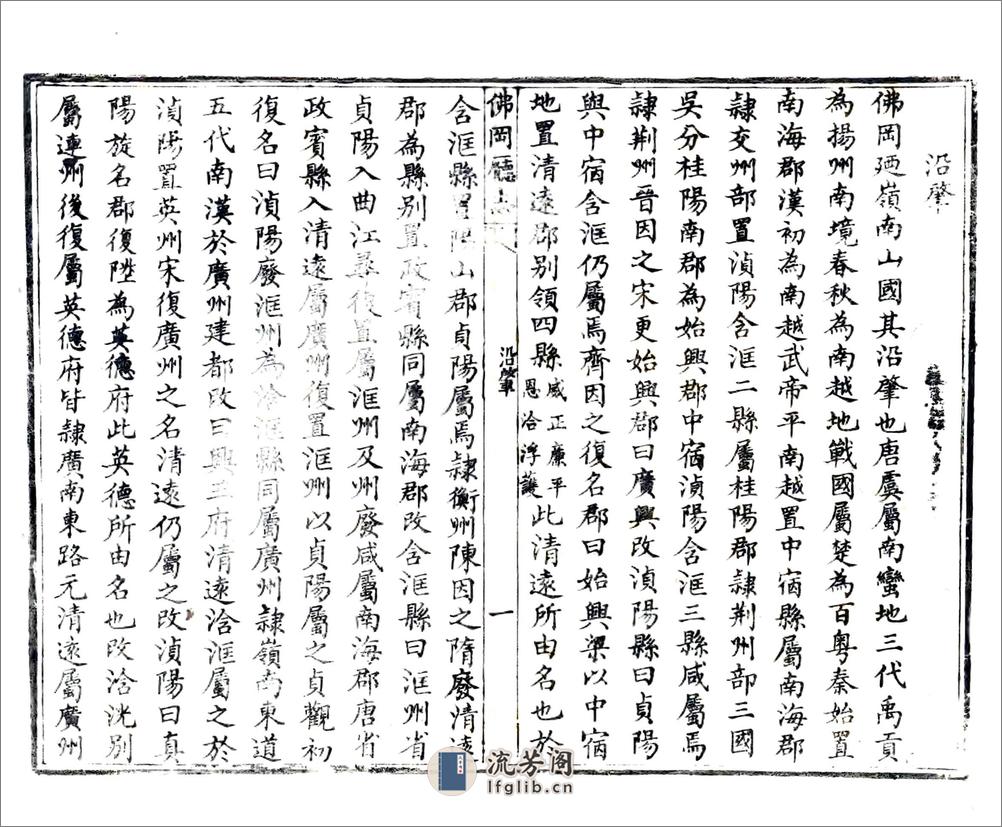 沿肇
佛岡廼嶺南山國其沿肇也唐虞屬南蠻地三代禹貢
為揚州南境春秋為南越地戰國屬楚為百粵秦始置
南海郡漢初為南越武帝平南越置中宿縣屬南海郡
隷交州部置湞陽含洭二縣屬桂陽郡隷荆州部三國
吳分桂陽南郡為始興郡中宿湞陽含洭三縣咸屬焉
隷荆州晉因之宋更始興郡曰廣興改湞陽縣曰貞陽
與中宿含洭仍屬焉齊因之復名郡曰始興梁以中宿
地置清遠郡别領四縣威正廉平恩洽浮護此清遠所由名也於
佛岡廳
沿肇
一
含洭縣置山郡貞陽屬焉隷衡州陳因之隋廢清遠
郡為縣别置政賓縣同屬南海郡改含洭縣曰洭州省
貞陽入曲江尋復置屬洭州及州廢咸屬南海郡唐省
政賓縣入清遠屬廣州復置洭州以貞陽屬之貞觀初
復名曰湞陽廢洭州為浛洭縣同屬廣州隷嶺南東道
五代南漢於廣州建都改曰興王府清遠浛洭屬之於
湞陽置英州宋復廣州之名清遠仍屬之改湞陽曰真
陽旋名郡復陞為英德府此英德所由名也改浛洸别
屬連州後復屬英德府皆隷廣南東路元清遠屬廣州
流芳阁
lfglib.cn